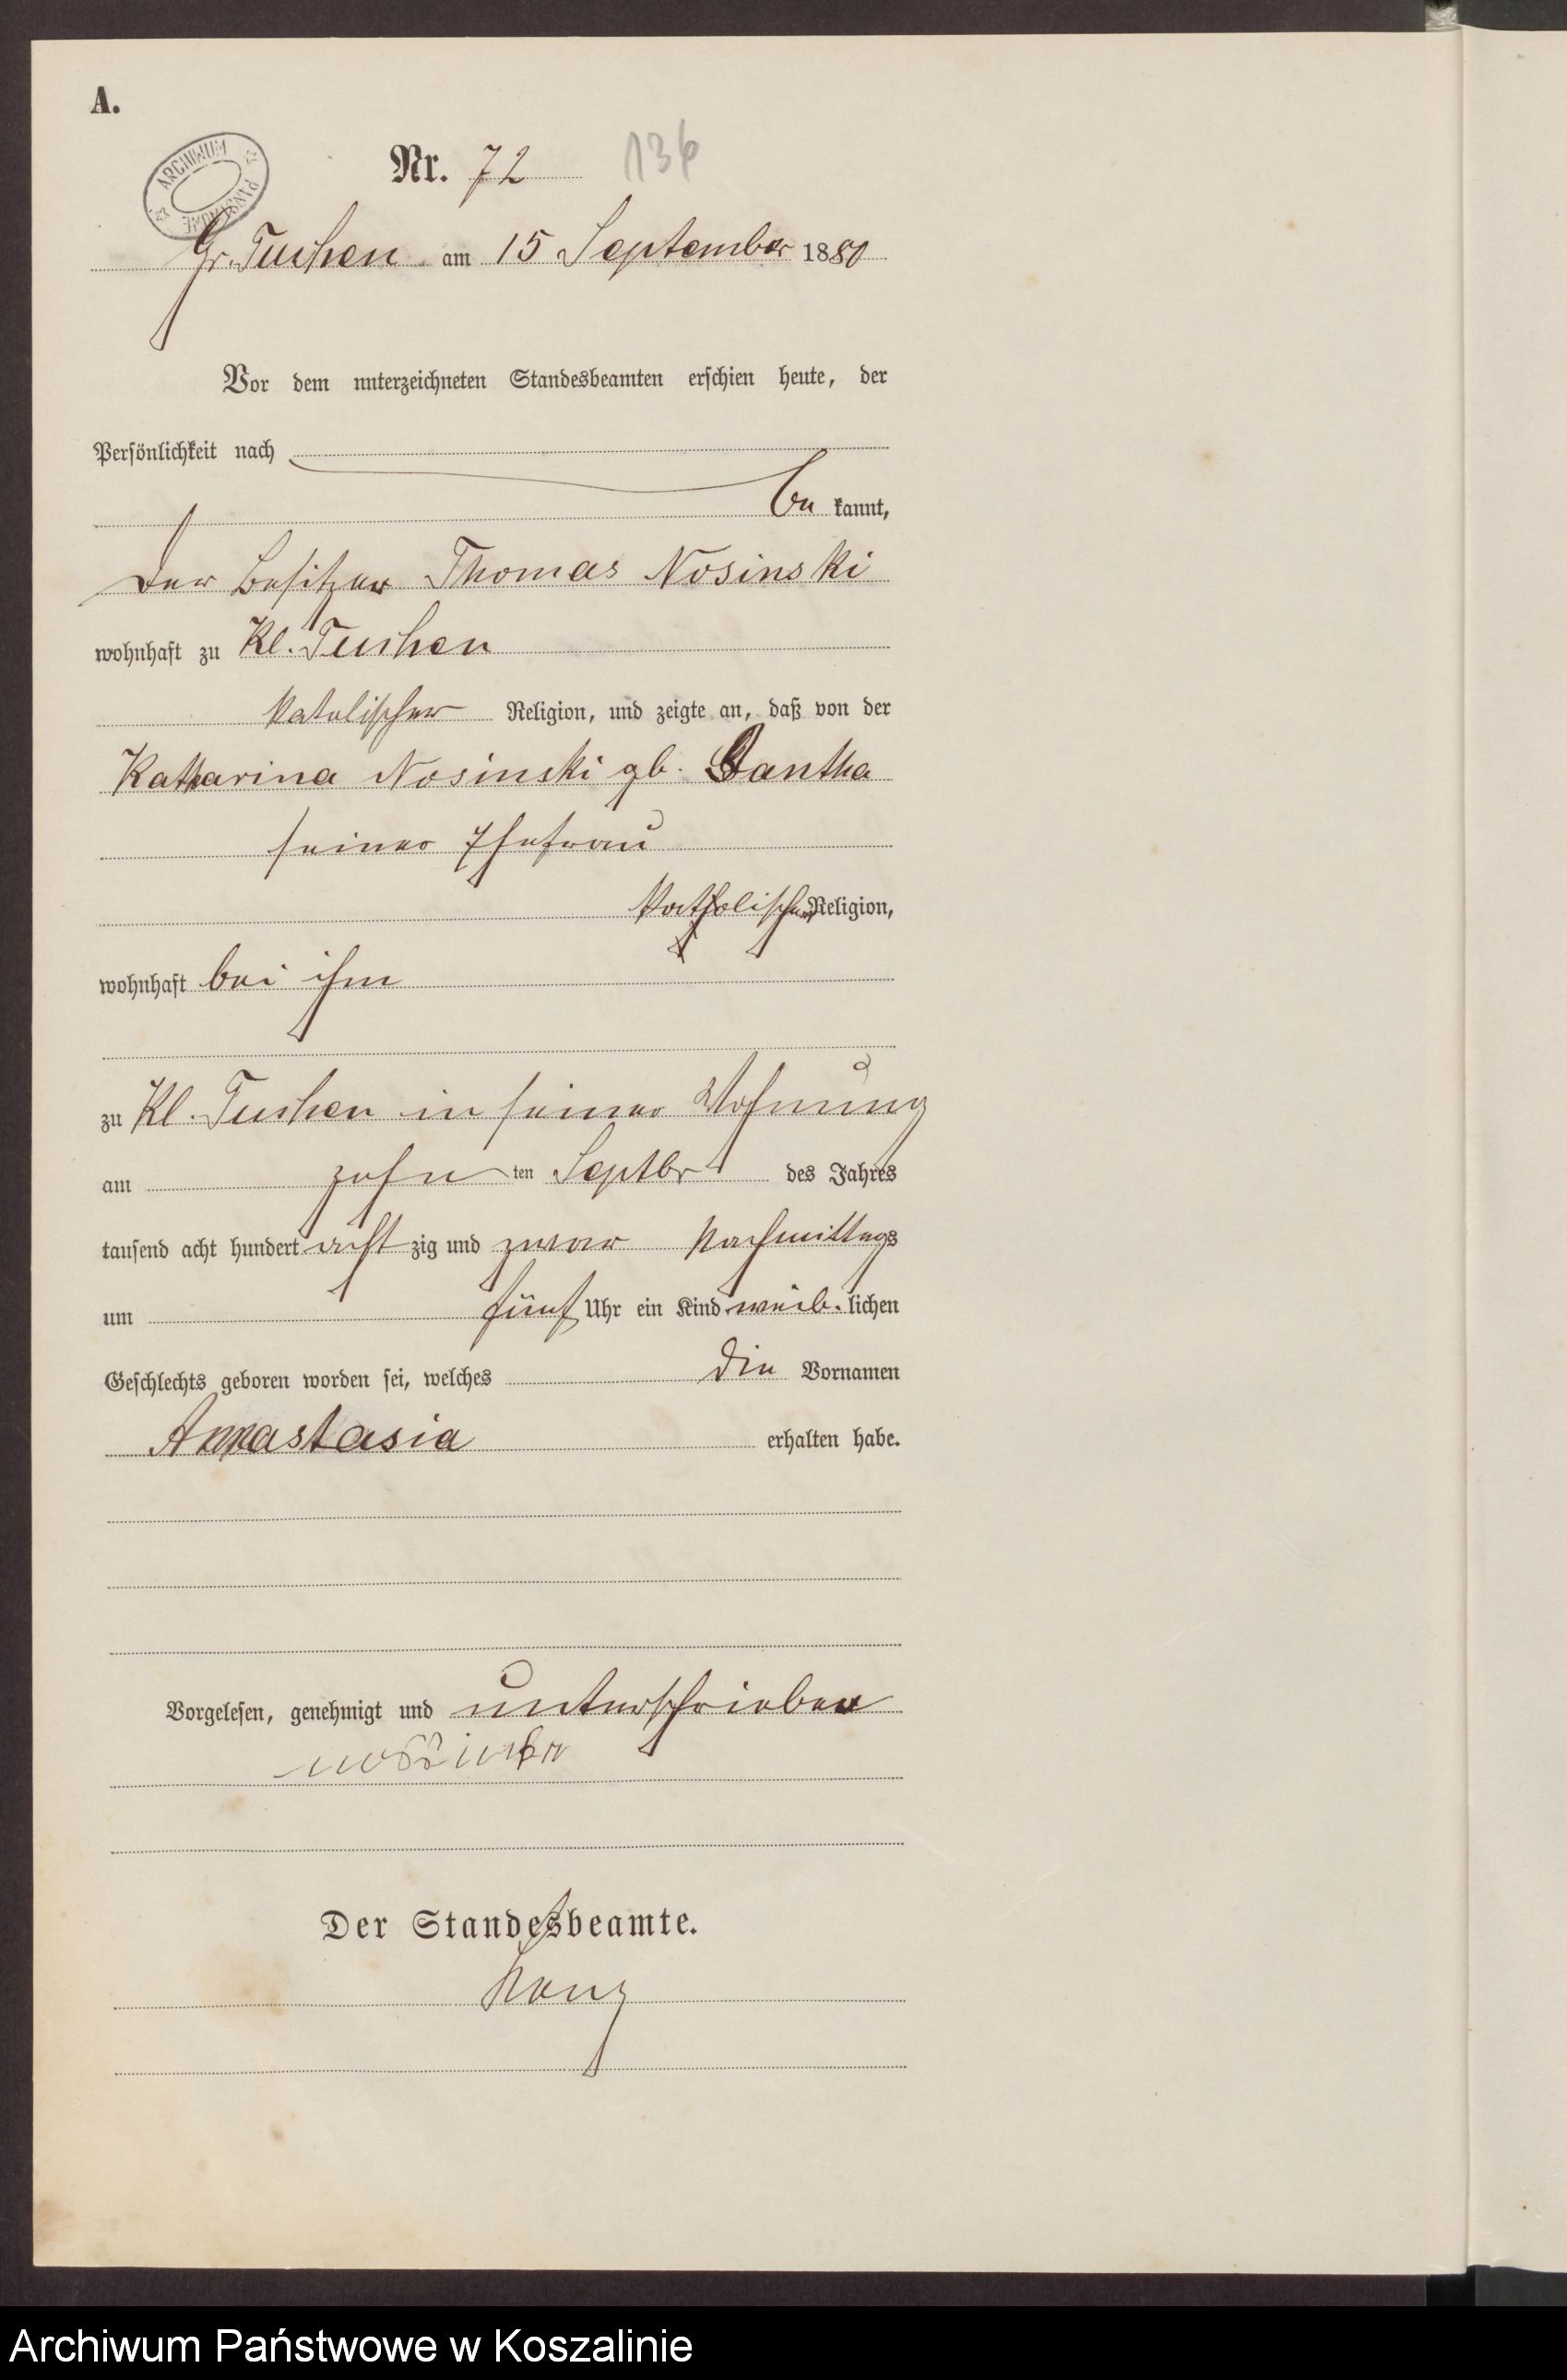 A.
ARCHIWUM PAŃSTWOWE
Nr. 72 136
Gr. Tuchen am 15 September 1880
Vor dem unterzeichneten Standesbeamten erschien heute, der
Persönlichkeit nach
be kannt,
der Besitzer Thomas Nosinski
wohnhaft zu Kl. Tuchen
katolischer Religion, und zeigte an, daß von der
Katharina Nosinski gb. Gantha
seiner Ehefrau
katholischer Religion,
wohnhaft bei ihm
zu Kl. Tuchen in seiner Wohnung
am zehn ten Septbr des Jahres
tausend acht hundert acht zig und zwar Nachmittags
um fünf Uhr ein Kind weib. lichen
Geschlechts geboren worden sei, welches die Vornamen
Annastasia erhalten habe.
Vorgelesen, genehmigt und unterschrieben
Der Standesbeamte.
Archiwum Państwowe w Koszalinie